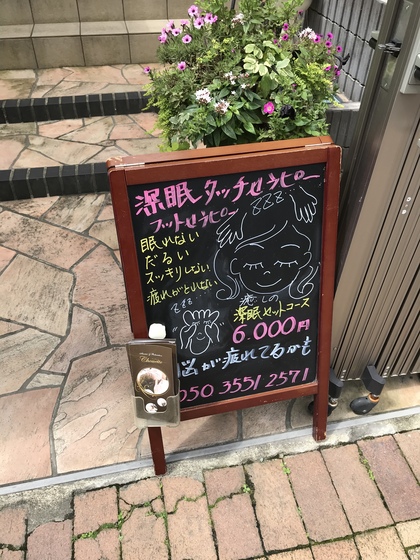 深眠タッチセラピー
フットセラピー
眠れない
だるい
スッキリしない
疲れがとれない
癒しの
深眠セットコース
6.000円
脳が疲れてるかも
050 3551 2571